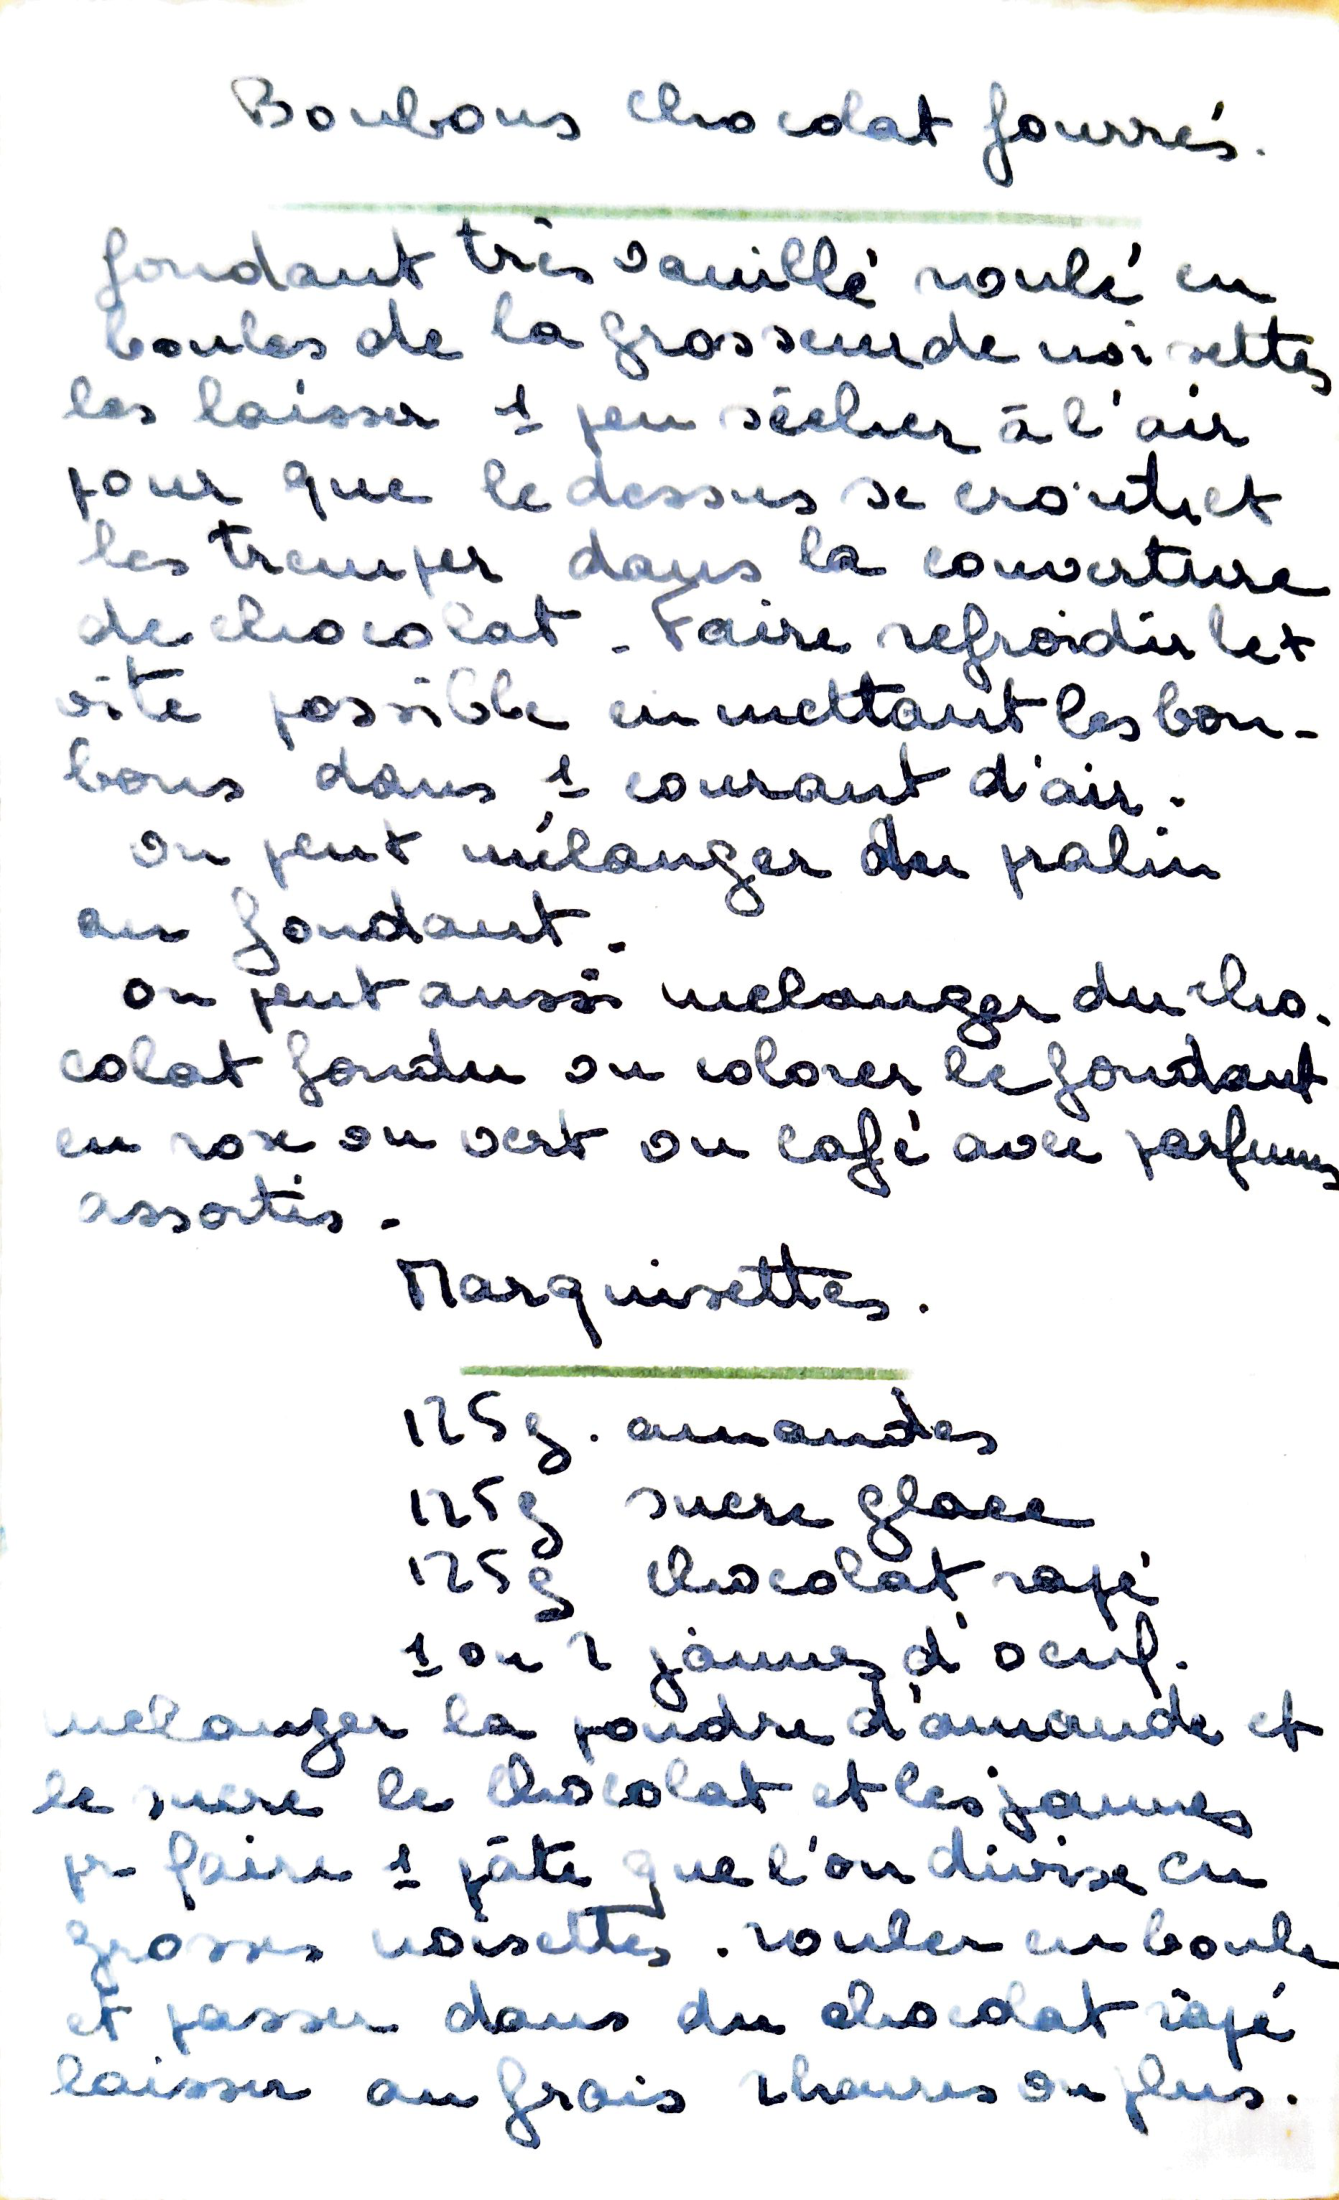 Bonbons chocolat fourrés.
fondant très vanillé roulé en
boules de la grosseur de noisettes
les laisser 1 peu sécher à l'air
pour que le dessus se croûte et
les tremper dans la couverture
de chocolat - Faire refroidir le +
vite possible en mettant les bon-
bons dans 1 courant d'air.
on peut mélanger du pralin
au fondant.
on peut aussi melanger du cho-
colat fondu ou colorer le fondant
en rose ou vert ou café avec parfums
assortis -
Marquisettes.
125g. amandes
125g sucre glace
125g chocolat rapé
1 ou 2 jaunes d'oeuf.
melanger la poudre d'amande et
le sucre le chocolat et les jaunes
pr faire 1 pâte que l'on divise en
grosses noisettes. rouler en boule
et passer dans du chocolat râpé
laisser au frais 2 heures ou plus.